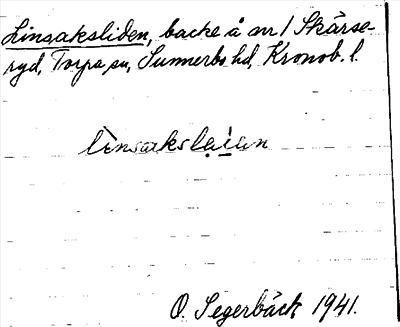 Linsaksliden, backe å nr 1 Skärse-
ryd, Torpa sn, Sunnerbo hd, Kronob. l.
O. Segerbäck 1941.